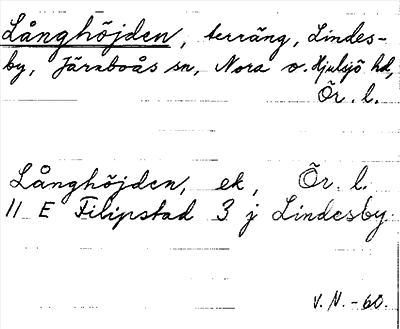 Långhöjden, terräng, Lindes-
by, Järnboås sn, Nora o. Hjulsjö hd,
Ör. l.
Långhöjden, ek, Ör. l.
11 E Filipstad 3 j Lindesby.
V. N. -60.